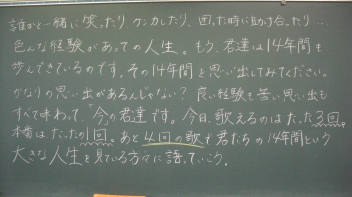 誰かと一緒に笑ったり、ケンカしたり、困った時に助け合ったり…
色んな経験があっての人生。もう、君達は14年間も
歩んできているのです。その14年間を思い出してみてください。
かなりの思い出があるんじゃない？良い経験も苦い思い出も
すべて味わって、「今」の君達です。今日、歌えるのはたった3回。
本番はたったの1回。あと4回の歌で君たちの14年間という
大きな人生を見ている方々に語っていこう。